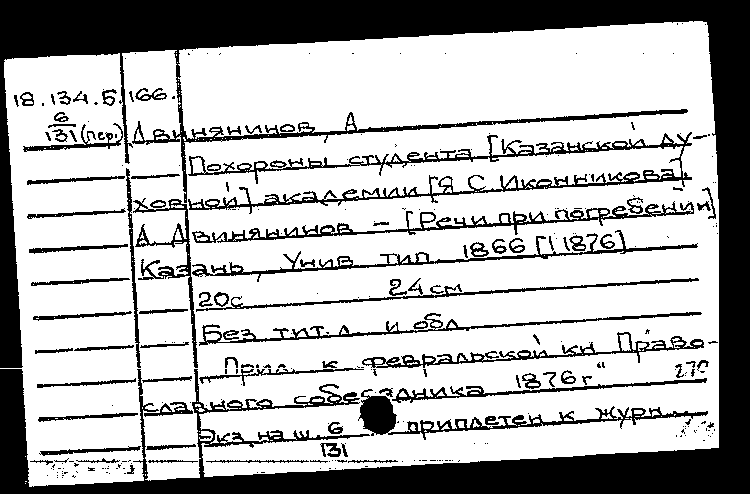 18.134.5.166.
6
131 (пер.) Двинянинов, А
Похороны студента [Казанской ду-
ховной] академии [Я С. Иконникова].
А. Двинянинов – [Речи при погребении]
Казань, Унив тип. 1866 [! 1876]
20с 24 см
Без тит. л. и обл.
„Прил. к февральской кн Право-
славного собеседника 1876 г“ 270
Экз. на ш. 6 приплетен к журн...
131